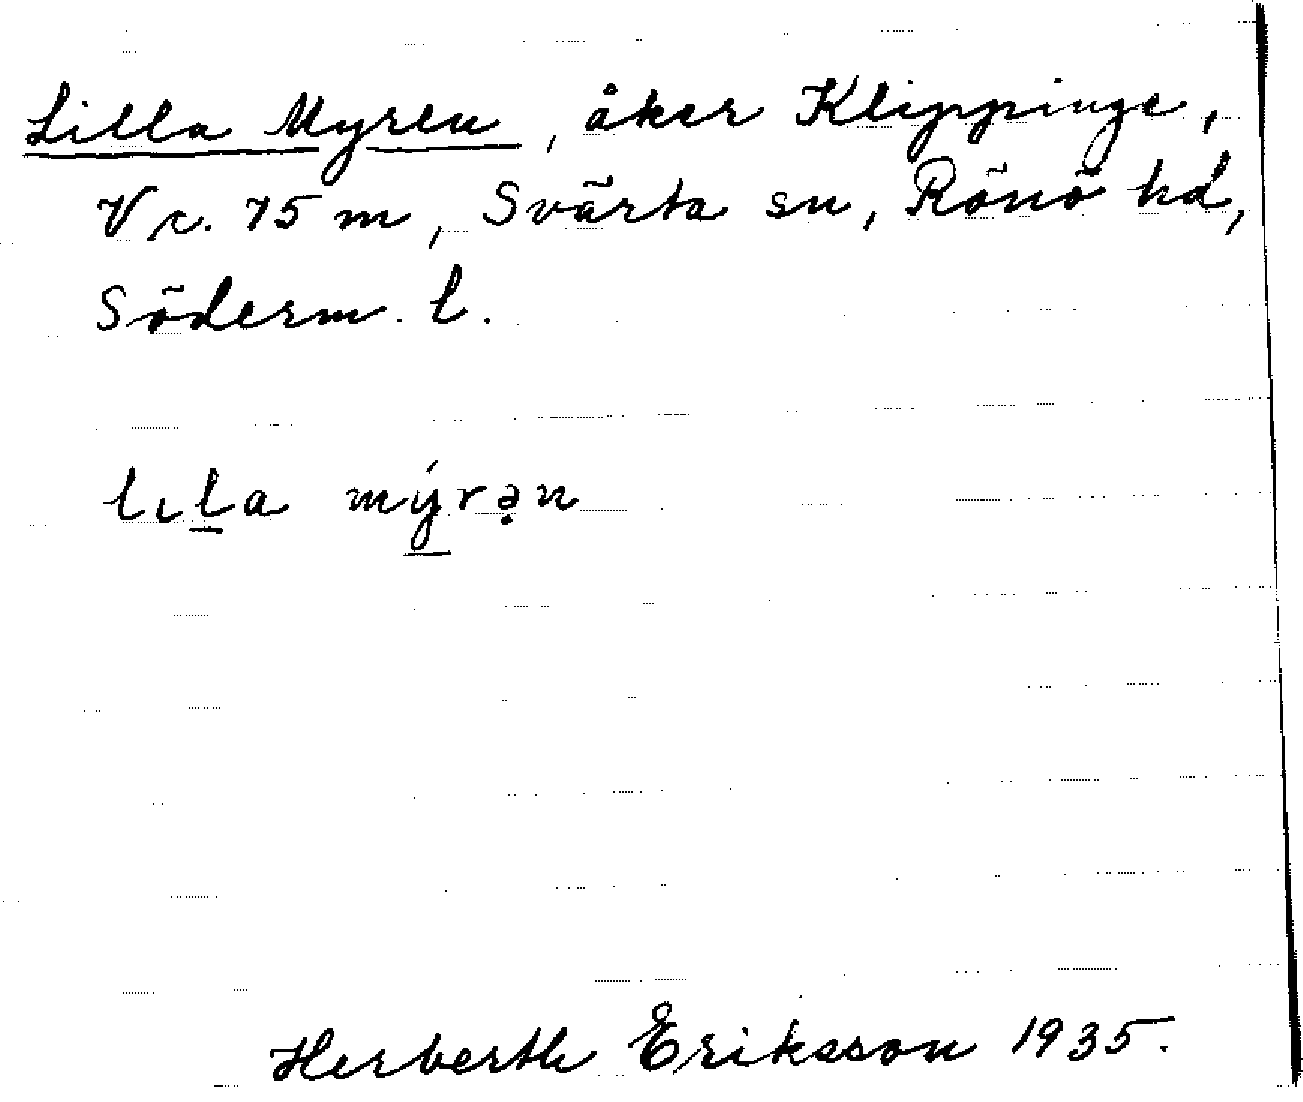 Lilla Myren, åker Klippinge,
V c. 75 m, Svärta sn, Rönö hd,
Söderm. l.
lıla mýrən
Herberth Eriksson 1935.